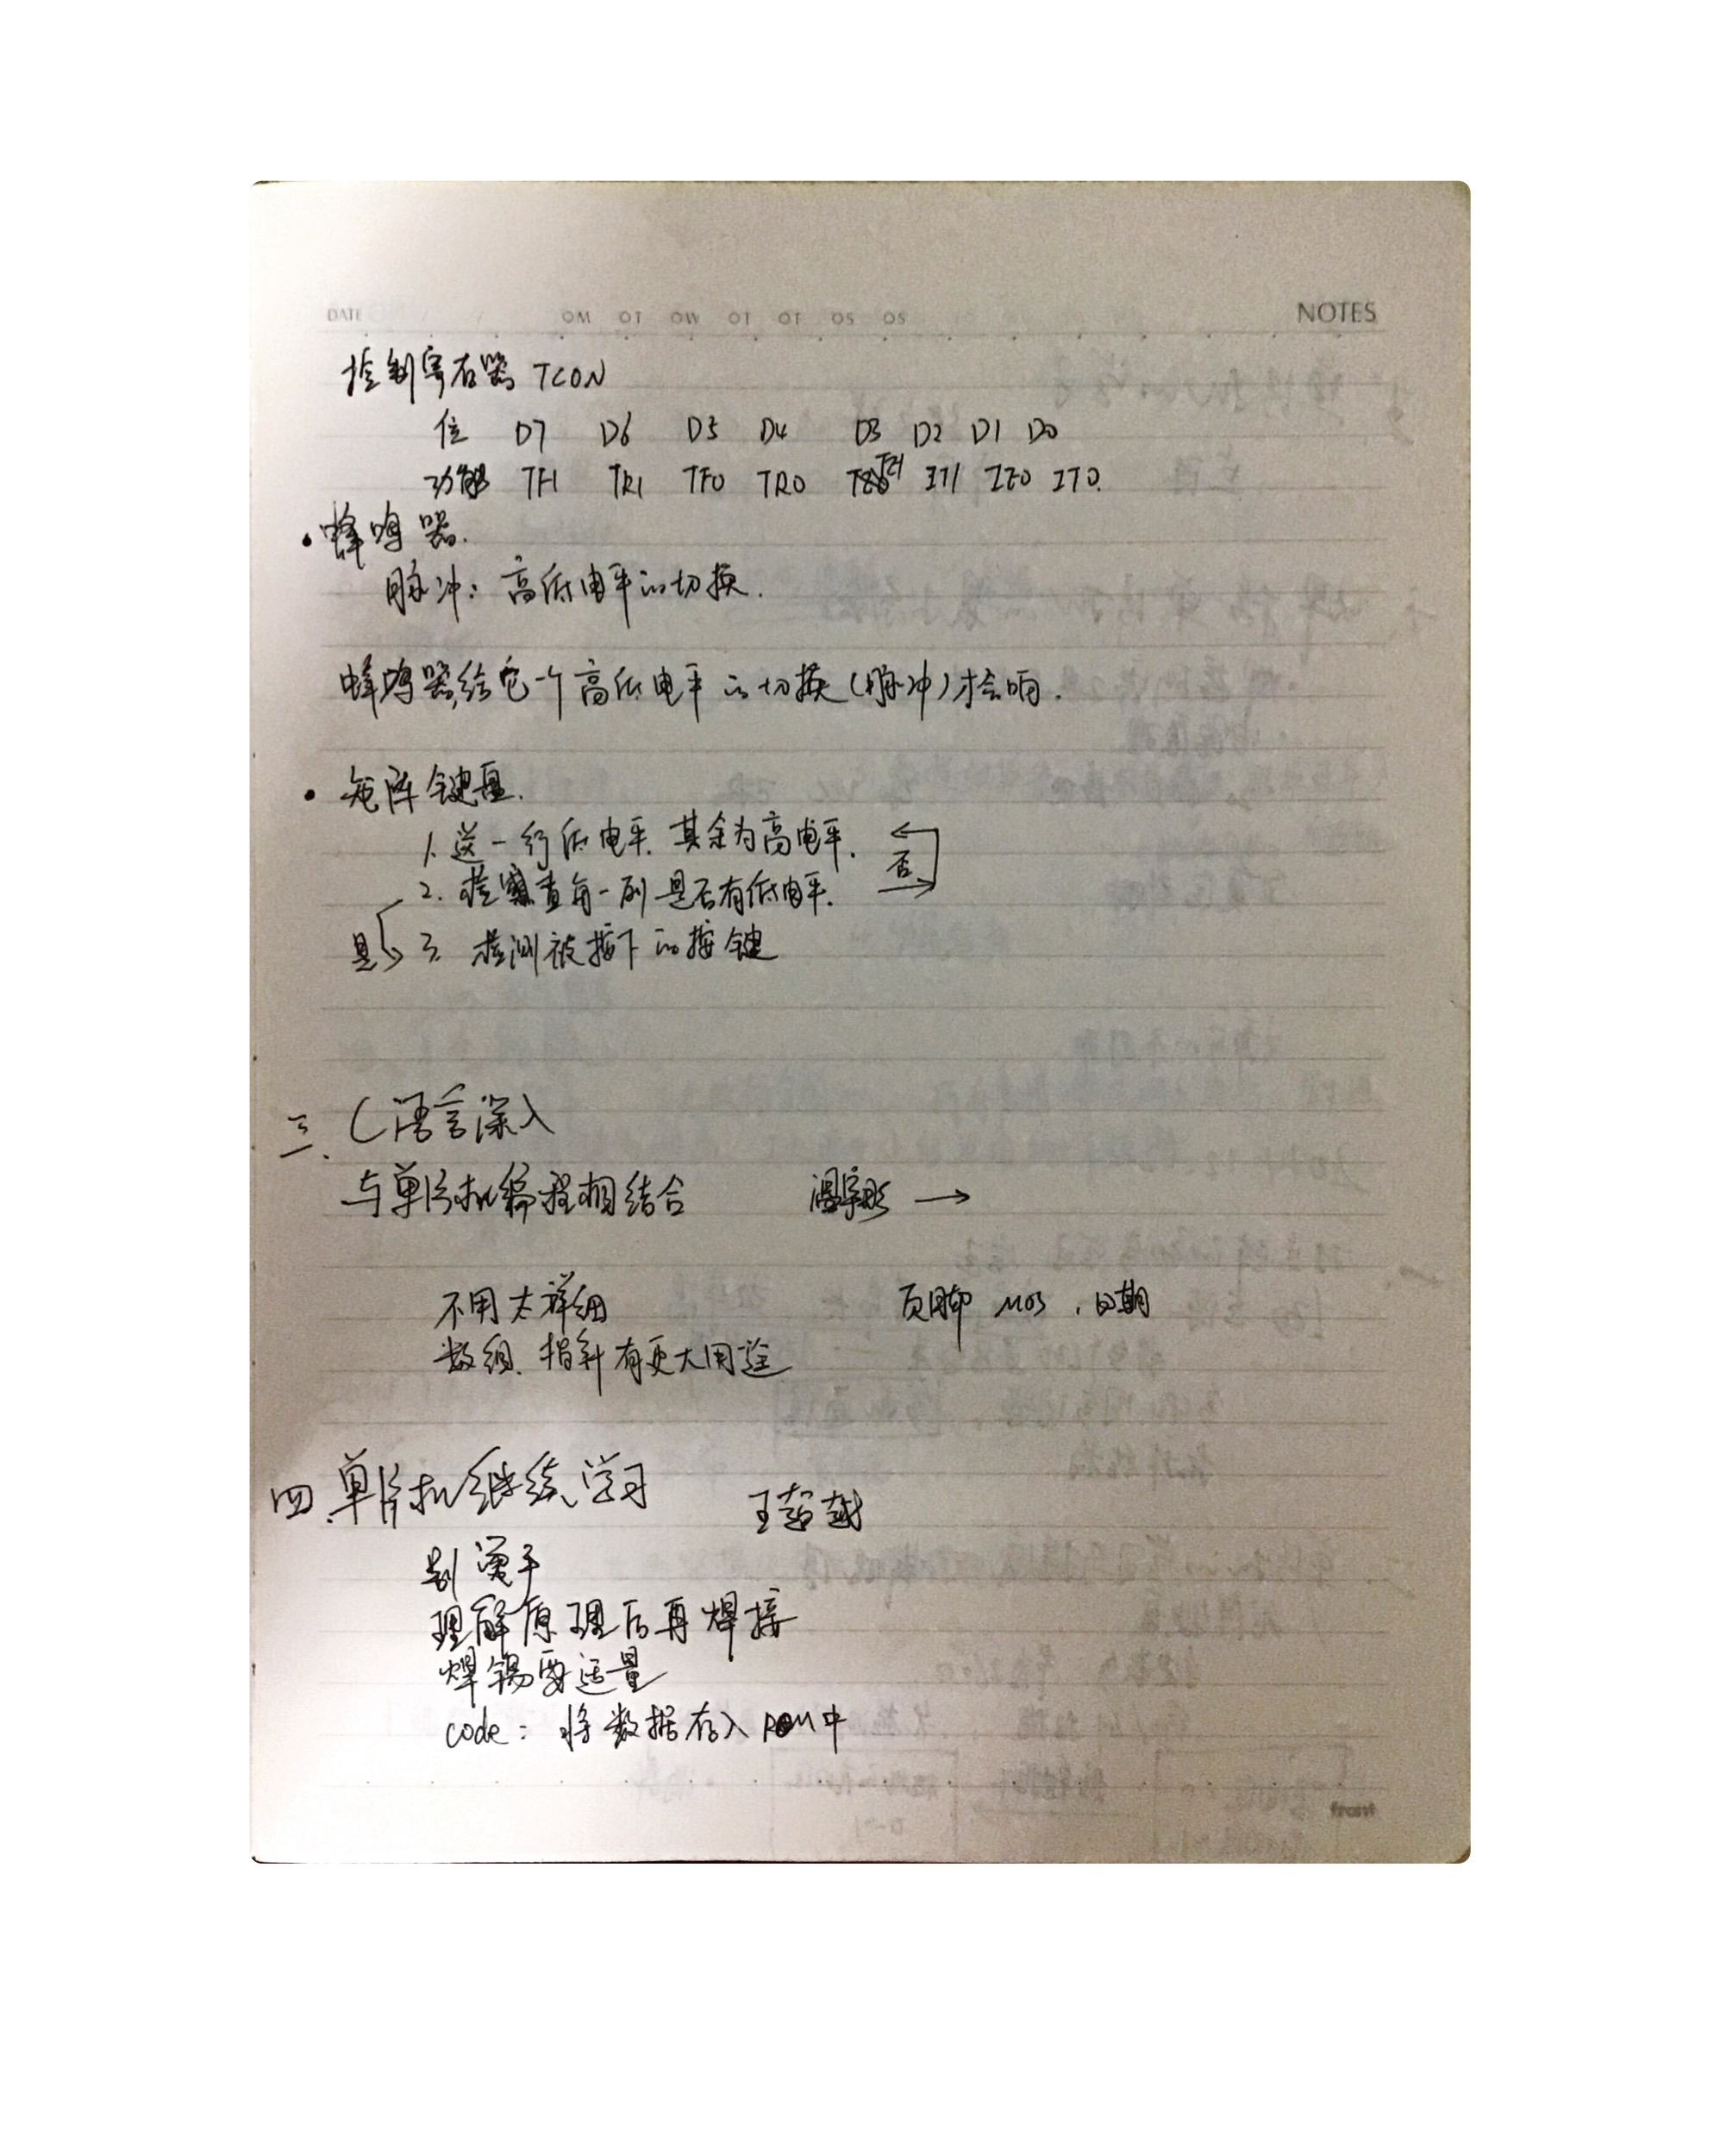 DATE
NOTES
控制寄存器 TCON
位 D7 D6 D5 D4 D3 D2 D1 D0
功能 TF1 TR1 TF0 TR0 IE1 IT1 IE0 IT0.
·蜂鸣器.
脉冲: 高低电平的切换.
蜂鸣器,给它一个高低电平的切换(脉冲)才会响.
·矩阵键盘.
1. 送一行低电平. 其余为高电平.
否
2. 检查每一列是否有低电平.
是 3. 检测被按下的按键
三. C语言深入
与单片机编程相结合 →
不用太详细 页脚 M03 , 日期
数组. 指针有更大用途
四.单片机继续学习 王超越
别烫手
理解原理后再焊接
焊锡要适量
code: 将数据存入ROM中
front